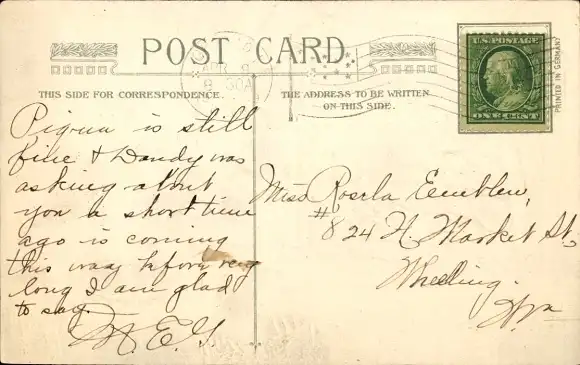 POST CARD
THIS SIDE FOR CORRESPONDENCE.
THE ADDRESS TO BE WRITTEN
ON THIS SIDE.
U.S. POSTAGE
ONE CENT
PRINTED IN GERMANY
8 30A
Piqua is still
fine & Dandy was
asking about
you a short time
ago is coming
this way before very
long I am glad
to say.
M. E. G.
Miss Rosela Emblem,
#824 N. Market St.
Wheeling.
W Va